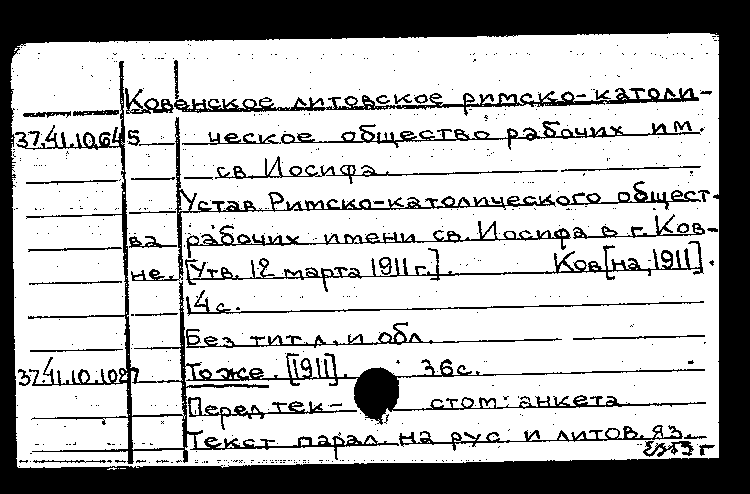 Ковенское литовское римско-католи-
37.41.10.645 ческое общество рабочих им.
св Иосифа.
Устав Римско-католического общест-
ва рабочих имени св. Иосифа в г. Ков-
не. [Утв. 12 марта 1911 г.]. Ков[на, 1911].
14 с.
Без тит. л. и обл.
37.41.10.1027 То же. [1911]. 36с.
Перед тек- стом: анкета
Текст парал. на рус. и литов. яз.